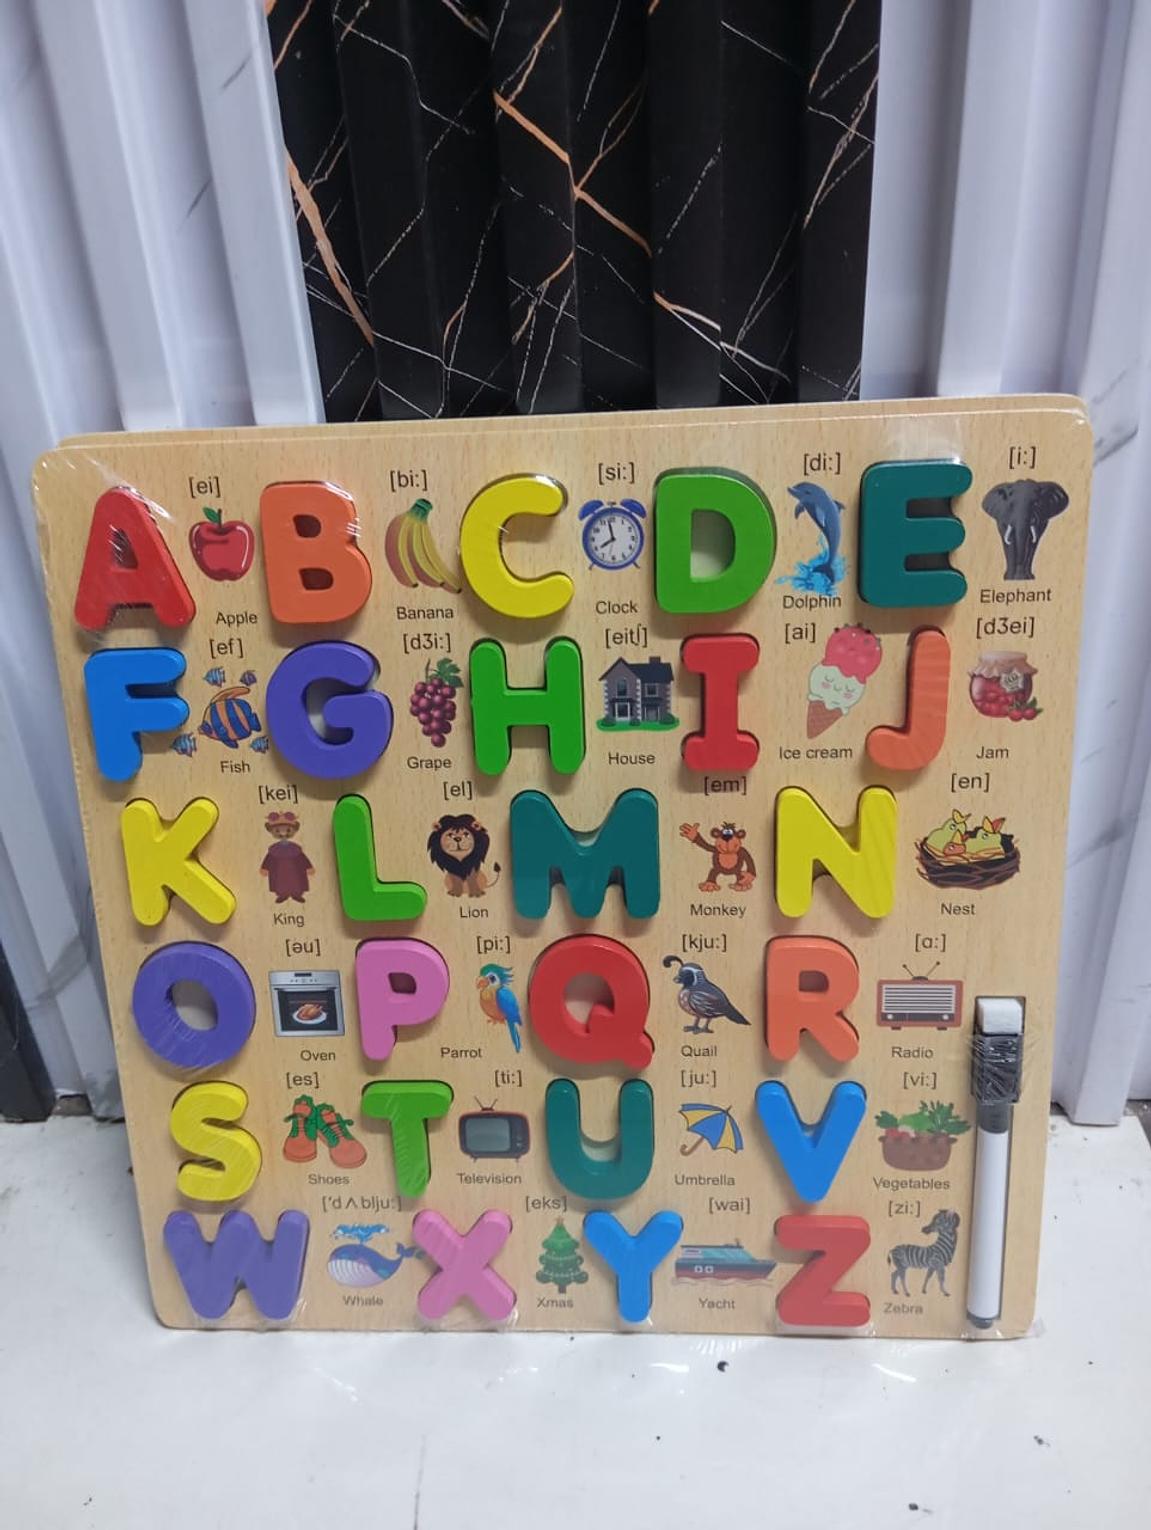 [ei] [bi:] [si:] [di:] [i:]
A B C D E
Apple Banana Clock Dolphin Elephant
[ef] [dʒi:] [eitʃ] [ai] [dʒei]
F G H I J
Fish Grape House Ice cream Jam
[kei] [el] [em] [en]
K L M N
King Lion Monkey Nest
[əu] [pi:] [kju:] [ɑ:]
O P Q R
Oven Parrot Quail Radio
[es] [ti:] [ju:] [vi:]
S T U V
Shoes Television Umbrella Vegetables
['dʌblju:] [eks] [wai] [zi:]
W X Y Z
Whale Xmas Yacht Zebra